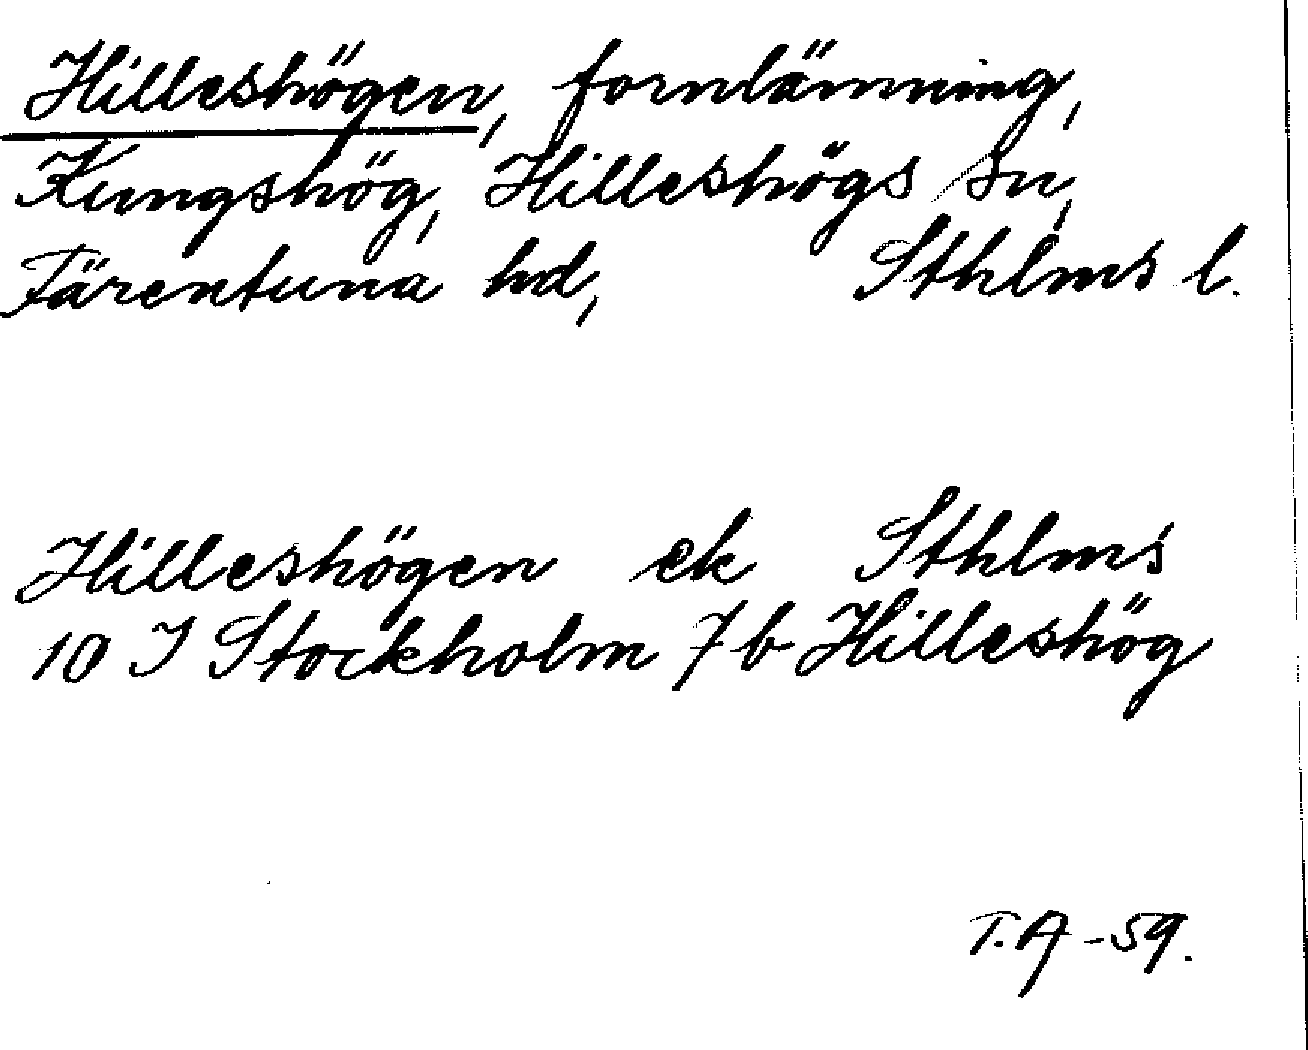 Hilleshögen, fornlämning,
Kungshög, Hilleshögs sn,
Färentuna hd, Sthlms l.
Hilleshögen ek Sthlms
10 I Stockholm 7 b Hilleshög
T.A -59.